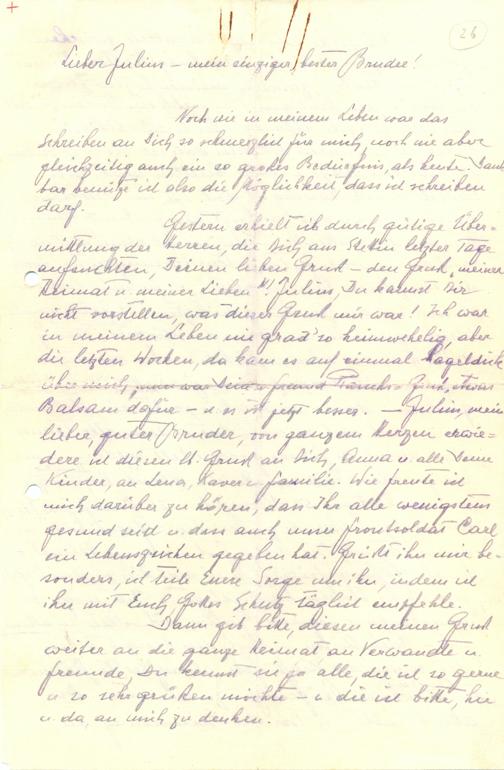 26
Lieber Julius – mein einziger, bester Bruder!
Noch nie in meinem Leben war das
Schreiben an Dich so schmerzlich für mich, noch nie aber
gleichzeitig auch ein so großes Bedürfnis, als heute. Dank
bar benütze ich also die Möglichkeit, dass ich schreiben
darf.
Gestern erhielt ich durch gütige Über-
mittlung der Herren, die Dich aus Stettin letzter Tage
aufsuchten, Deinen lieben Gruß – den Gruß meiner
Heimat u. meiner Lieben!! Julius, Du kannst Dir
nicht vorstellen, was dieser Gruß mir war! Ich war
in meinem Leben nie grad' so heimwehelig, aber
die letzten Wochen, da kam es auf einmal
über mich, nun war Dein Gruß etwas
Balsam dafür – u. es ist jetzt besser. – Julius, mein
lieber, guter Bruder, von ganzem Herzen erwie-
dere ich diesen lb. Gruß an Dich, Anna u. alle Deine
Kinder, an Lena, Xaver u. Familie. Wie freute ich
mich darüber zu hören, dass Ihr alle wenigstens
gesund seid u. dass auch unser Frontsoldat Carl
ein Lebenszeichen gegeben hat. Grüßt ihn mir be-
sonders, ich teile Eure Sorge um ihn, indem ich
ihn mit Euch Gottes Schutz täglich empfehle.
Dann gib bitte, diesen meinen Gruß
weiter an die ganze Heimat an Verwandte u.
Freunde, Du kennst sie ja alle, die ich so gerne
u. so sehr grüßen möchte – u. die ich bitte, hie
u. da, an mich zu denken.